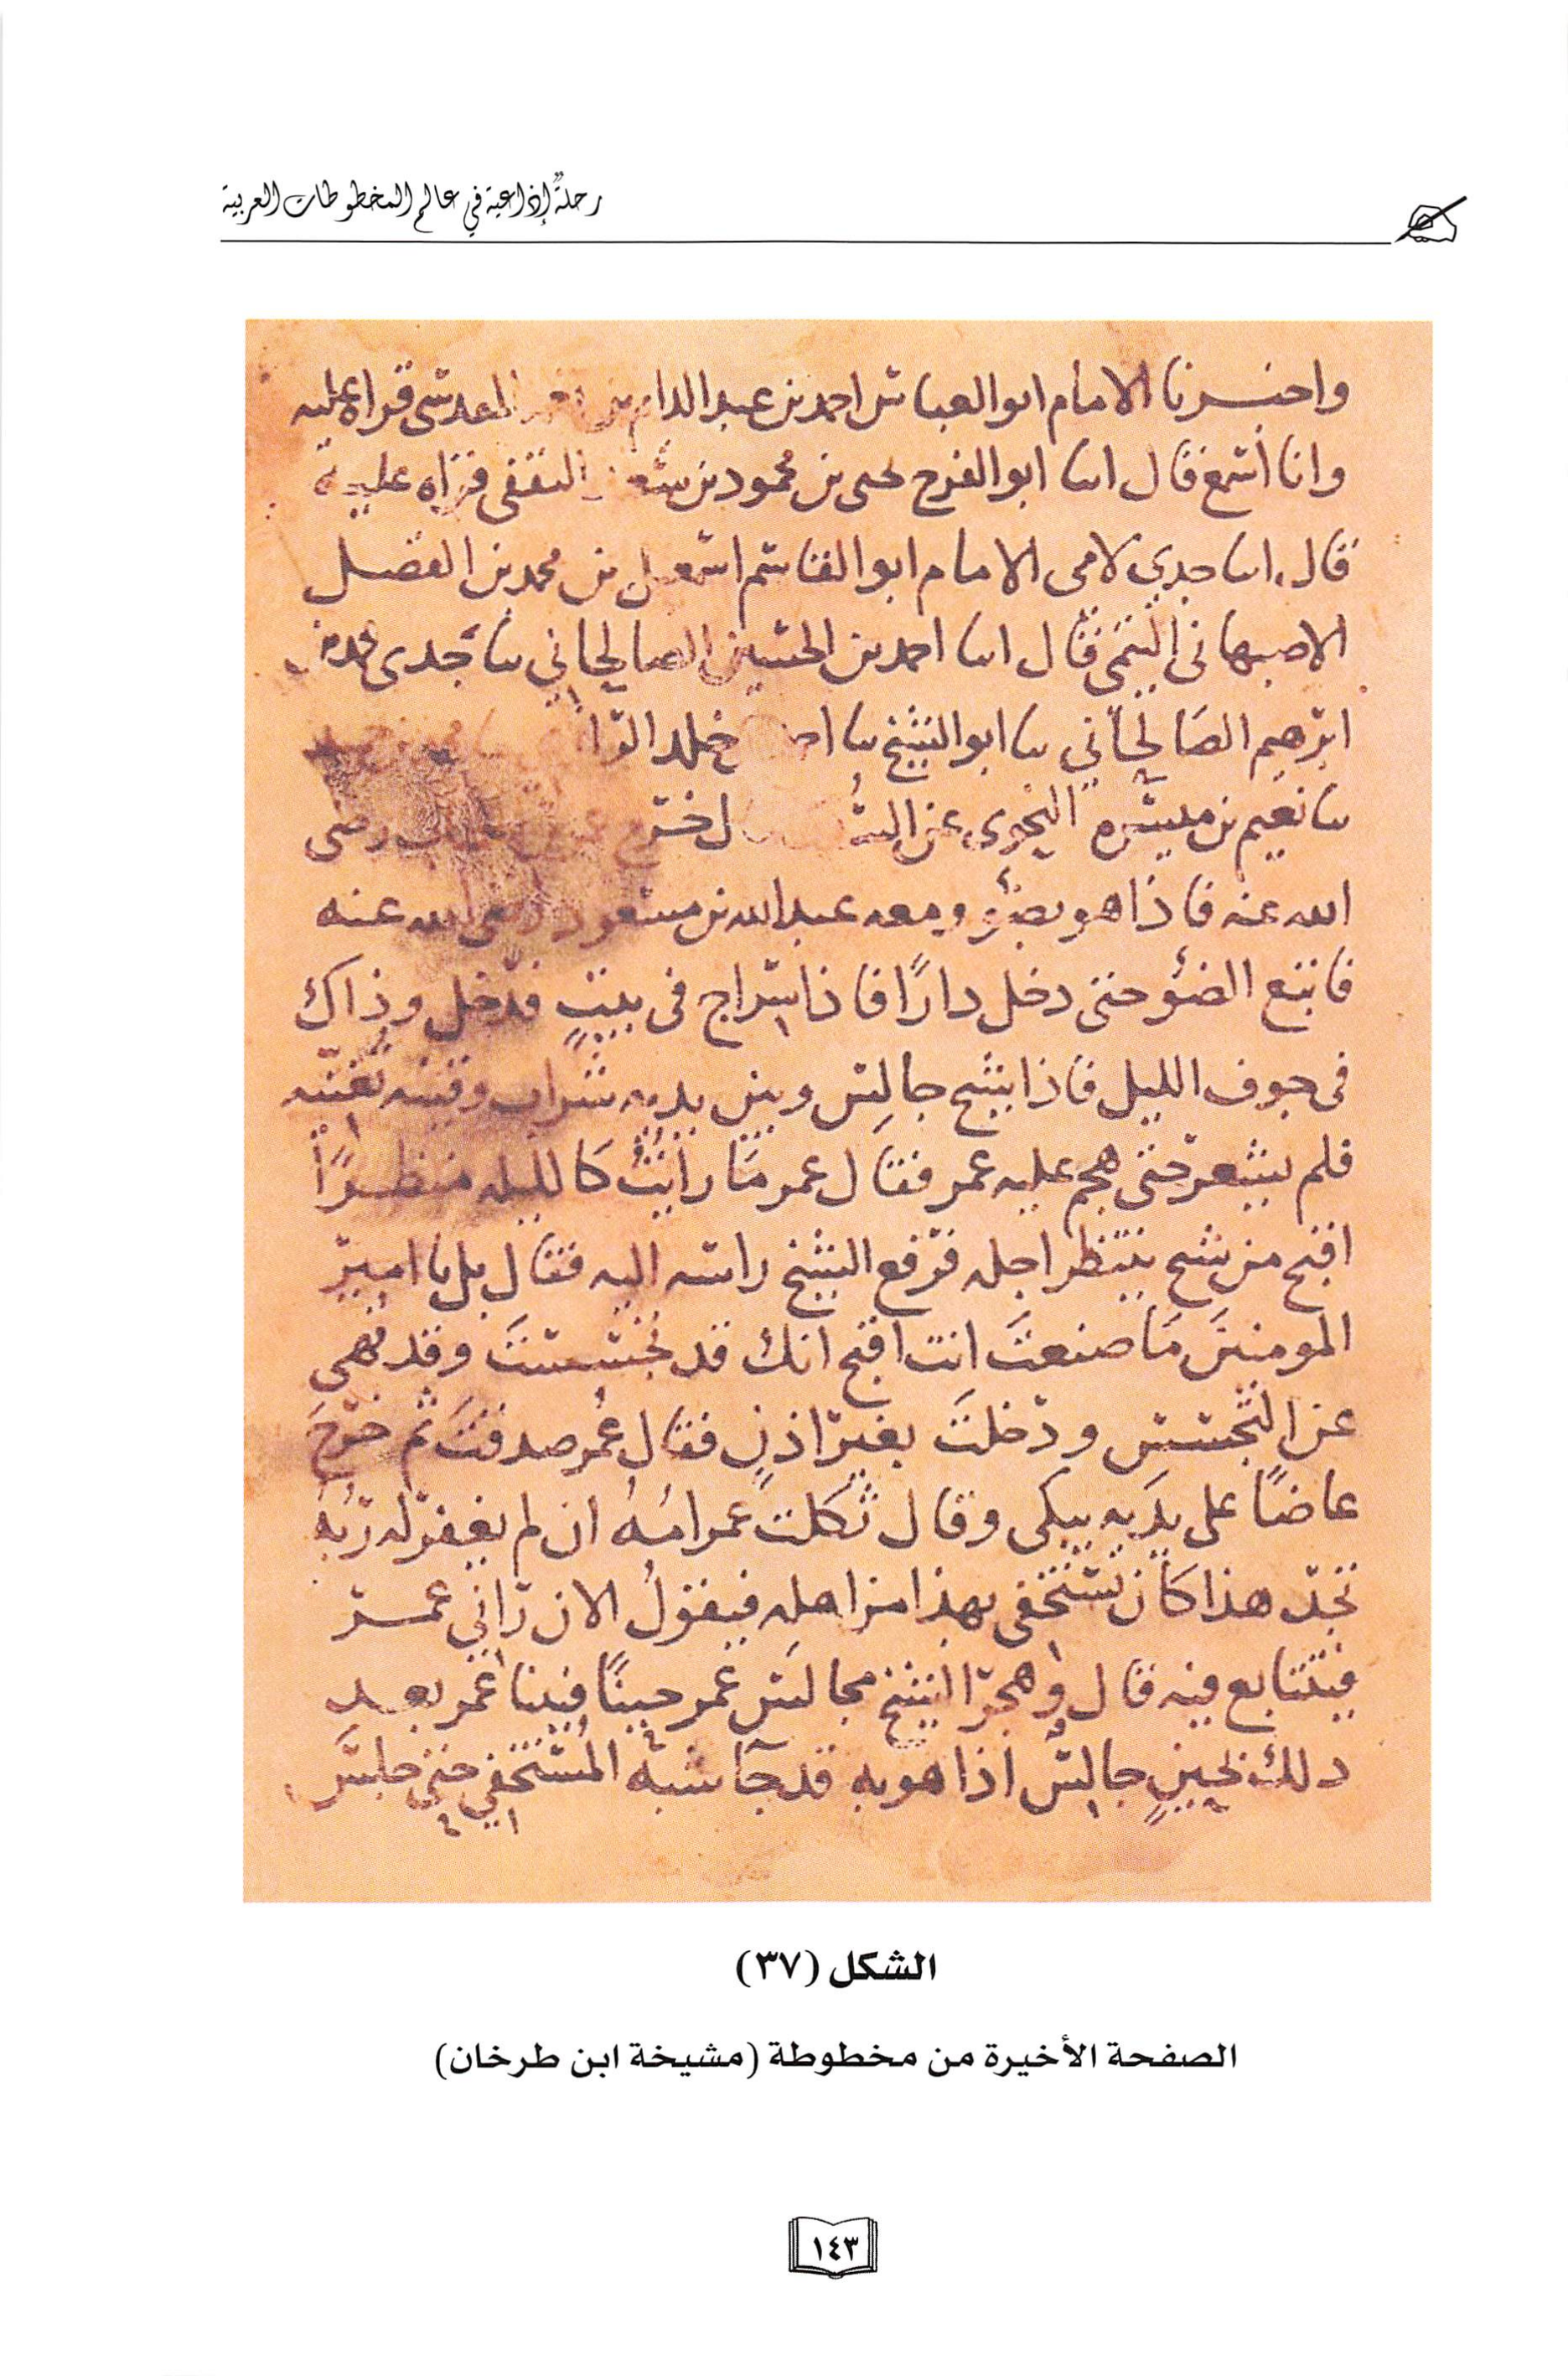 رحلةٌ إذاعية في عالم المخطوطات العربية
واخبرنا الامام ابو العباس احمد بن عبد الدايم بن المقدسي قراة عليه
وانا اسمع قال انبا ابو الفرج يحيى بن محمود بن سعد الثقفي قراه عليه
قال انبا جدي لامي الامام ابو القاسم اسمعيل بن محمد بن الفضل
الاصبهاني التيمي قال انبا احمد بن الحسين الصالحاني ثنا جدي
ابرهيم الصالحاني ثنا ابو الشيخ ثنا خلد
ثنا نعيم بن ميسره النحوي عن خرج رضي
الله عنه فاذا هو بضوء ومعه عبد الله بن مسعود رضي الله عنه
فاتبع الضوء حتى دخل دارًا فاذا سراج في بيتٍ فدخل وذاك
في جوف الليل فاذا شيخ جالس وبين يديه شراب وقينه تغنيه
فلم يشعر حتى هجم عليه عمر فقال عمر ما رايتُ كالليله منظرًا
اقبح من شيخ ينتظر اجله فرفع الشيخ راسه اليه فقال بل يا امير
المومنين مَا صنعتَ انت اقبح انك قد تجسستَ وقد نهي
عن التجسس ودخلتَ بغير اذنٍ فقال عُمر صدقتَ ثم خرجَ
عاضًا على يديه يبكي وقال ثكلت عمر امهُ ان لم يغفر له ربهُ
نجد هذا كان يستخفي بهذا من اهله فيقولُ الان راني عمر
فيتتابع فيه قال وهجر الشيخ مجالس عمر حينًا فبينا عمر بعد
ذلك بحينٍ جالس اذا هو به قد جآ شبه المُستخفي حتى جلسَ
الشكل (٣٧)
الصفحة الأخيرة من مخطوطة (مشيخة ابن طرخان)
١٤٣